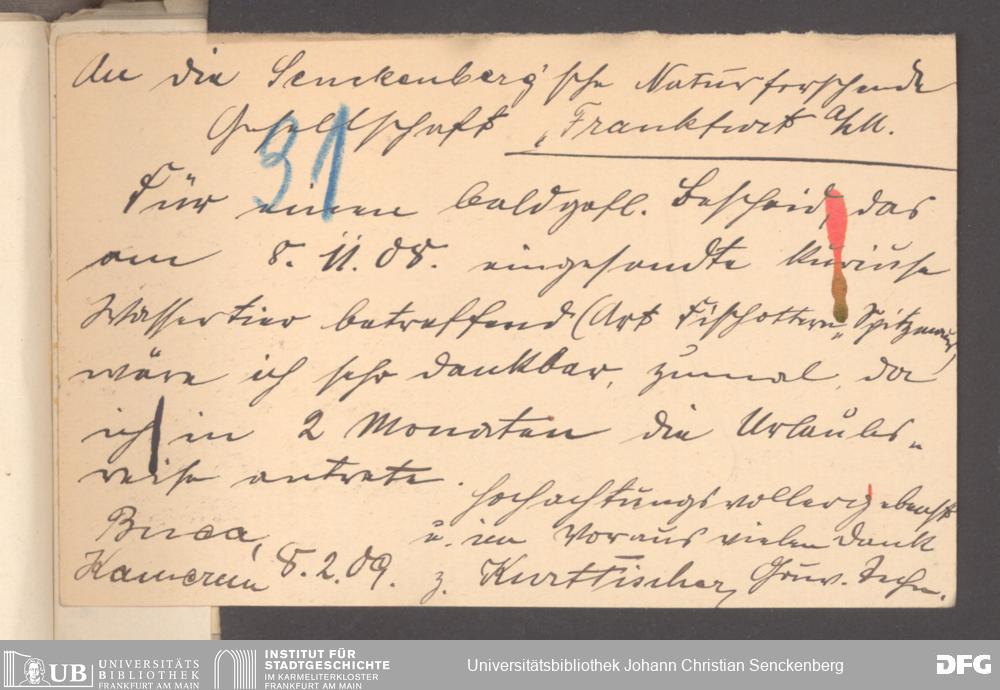 An die Senckenberg'sche Naturforschende
Gesellschaft, Frankfurt a/M.
31
Für einen baldgefl. Bescheid, das
am 8. 11. 08. eingesandte kuriose
Wassertier betreffend (Art Fischottern-Spitzmaus)
wäre ich sehr dankbar, zumal, da
ich in 2 Monaten die Urlaubs-
reise antrete.
Hochachtungsvoll ergebenst
u. im Voraus vielen Dank
Buea,
Kamerun 8.2.09.
Kurt Fischer, Gouv.
UB UNIVERSITÄTS
BIBLIOTHEK
FRANKFURT AM MAIN
INSTITUT FÜR
STADTGESCHICHTE
IM KARMELITERKLOSTER
FRANKFURT AM MAIN
Universitätsbibliothek Johann Christian Senckenberg
DFG